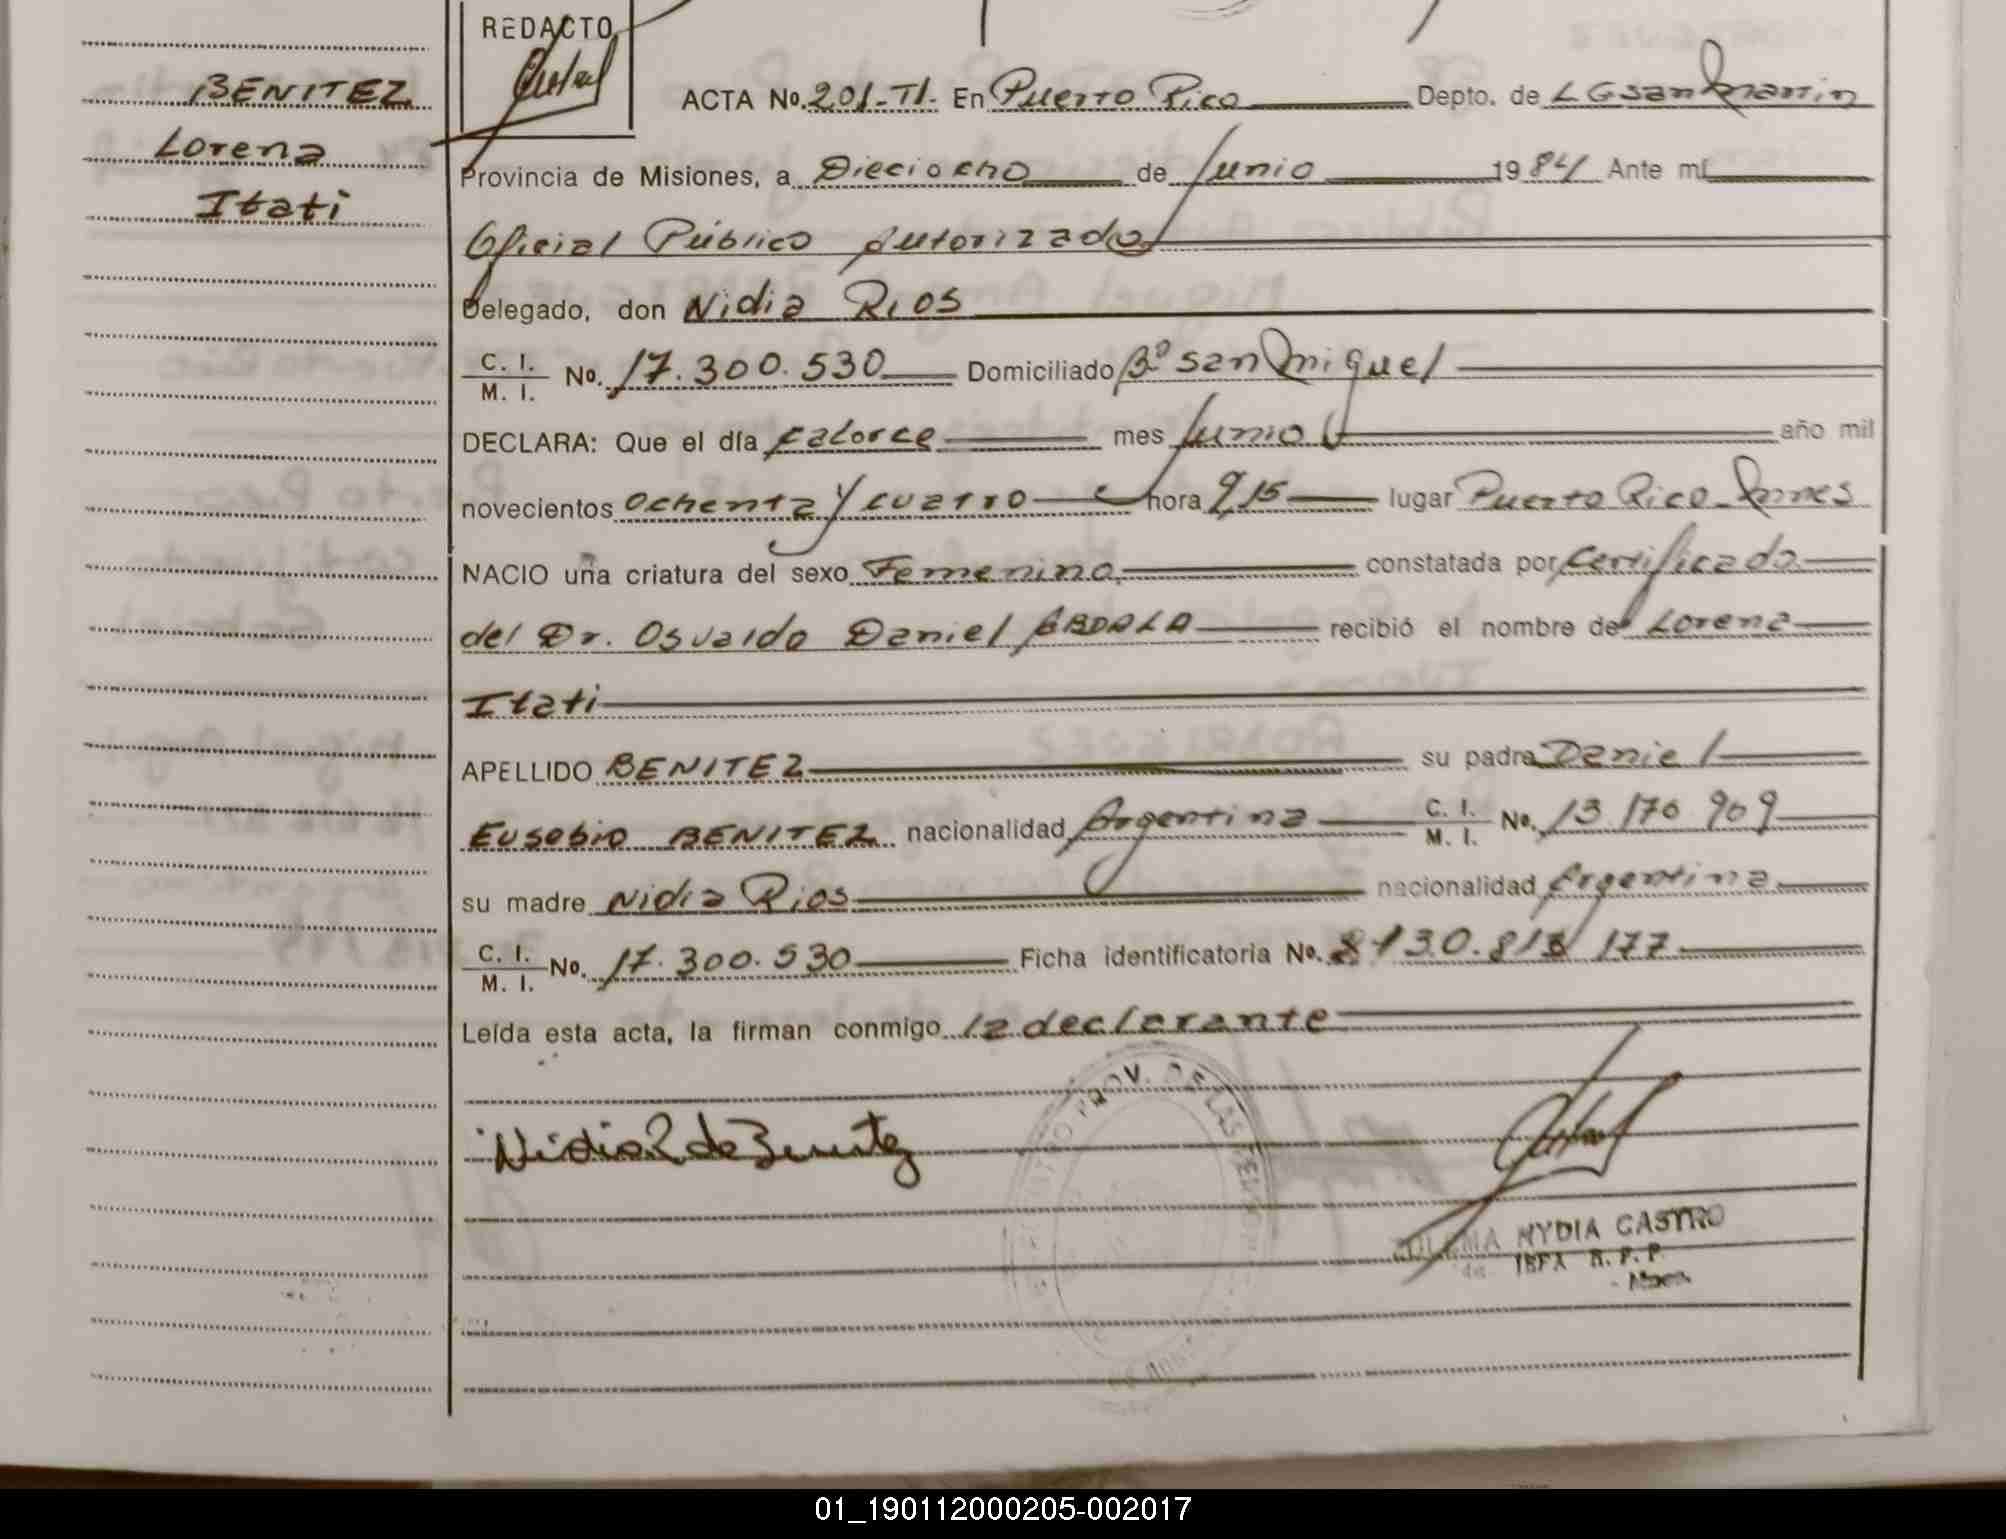 REDACTO
BENITEZ
Lorena
Itati
ACTA No. 201-TI- En Puerto Rico Depto. de LGSan Martin
Provincia de Misiones, a Dieciocho de Junio 1984 Ante mí
Oficial Público Autorizado
Delegado, don Nidia Rios
C. I.
M. I. No. 17.300.530 Domiciliado Bº San Miguel
DECLARA: Que el día catorce mes Junio año mil
novecientos ochenta y cuatro hora 9,15 lugar Puerto Rico - Mnes
NACIO una criatura del sexo Femenino constatada por Certificado
del Dr. Osvaldo Daniel ABDALA recibió el nombre de Lorena
Itati
APELLIDO BENITEZ su padre Daniel
Eusebio BENITEZ nacionalidad Argentina C. I.
M. I. No. 13 170 909
su madre Nidia Rios nacionalidad Argentina
C. I.
M. I. No. 17.300.530 Ficha identificatoria No. 177
Leída esta acta, la firman conmigo la declarante
Nidia R de Benitez
PROV. DE LAS
NYDIA CASTRO
JEFA R. P. P.
01_190112000205-002017